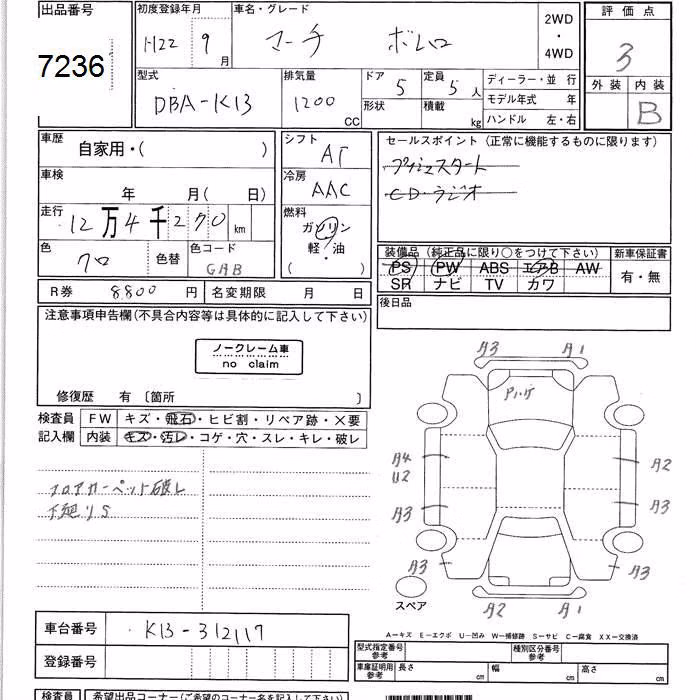 出品番号 初度登録年月 車名・グレード 2WD ・ 4WD 評価点
7236 H22 9月 マーチ ボレロ 3
型式 排気量 ドア 定員 ディーラー・並 行 外装 内装
DBA-K13 1200 CC 5 5人 モデル年式 年 B
形状 積載 kg ハンドル 左・右
車歴 自家用・( ) シフト AT セールスポイント (正常に機能するものに限ります)
車検 年 月( 日) 冷房 AAC プッシュスタート
CD・ラジオ
走行 12万4千270 km 燃料 ガソリン 軽・油 ( )
色 クロ 色替 色コード GAB
装備品 (純正品に限り○をつけて下さい) 新車保証書
PS PW ABS エアB AW 有・無
SR ナビ TV カワ
R券 8,800 円 名変期限 月 日 後日品
注意事項申告欄(不具合内容等は具体的に記入して下さい)
ノークレーム車
no claim
修復歴 有 〔箇所 〕
検査員 FW キズ・飛石・ヒビ割・リペア跡・×要
記入欄 内装 キズ・汚レ・コゲ・穴・スレ・キレ・破レ
フロアカーペット破レ
下廻りS
A3 A1
A4 U2 A2
A3 A3
A3 A3
A2 A1
スペア
車台番号 K13-312117
登録番号
A—キズ E—エクボ U—凹み W—補修跡 S—サビ C—腐食 XX—交換済
型式指定番号 参考 種別区分番号 参考
車庫証明用 参考 長さ cm 幅 cm 高さ cm
検査員 希望出品コーナー(ご希望のコーナー名を記入下さい)